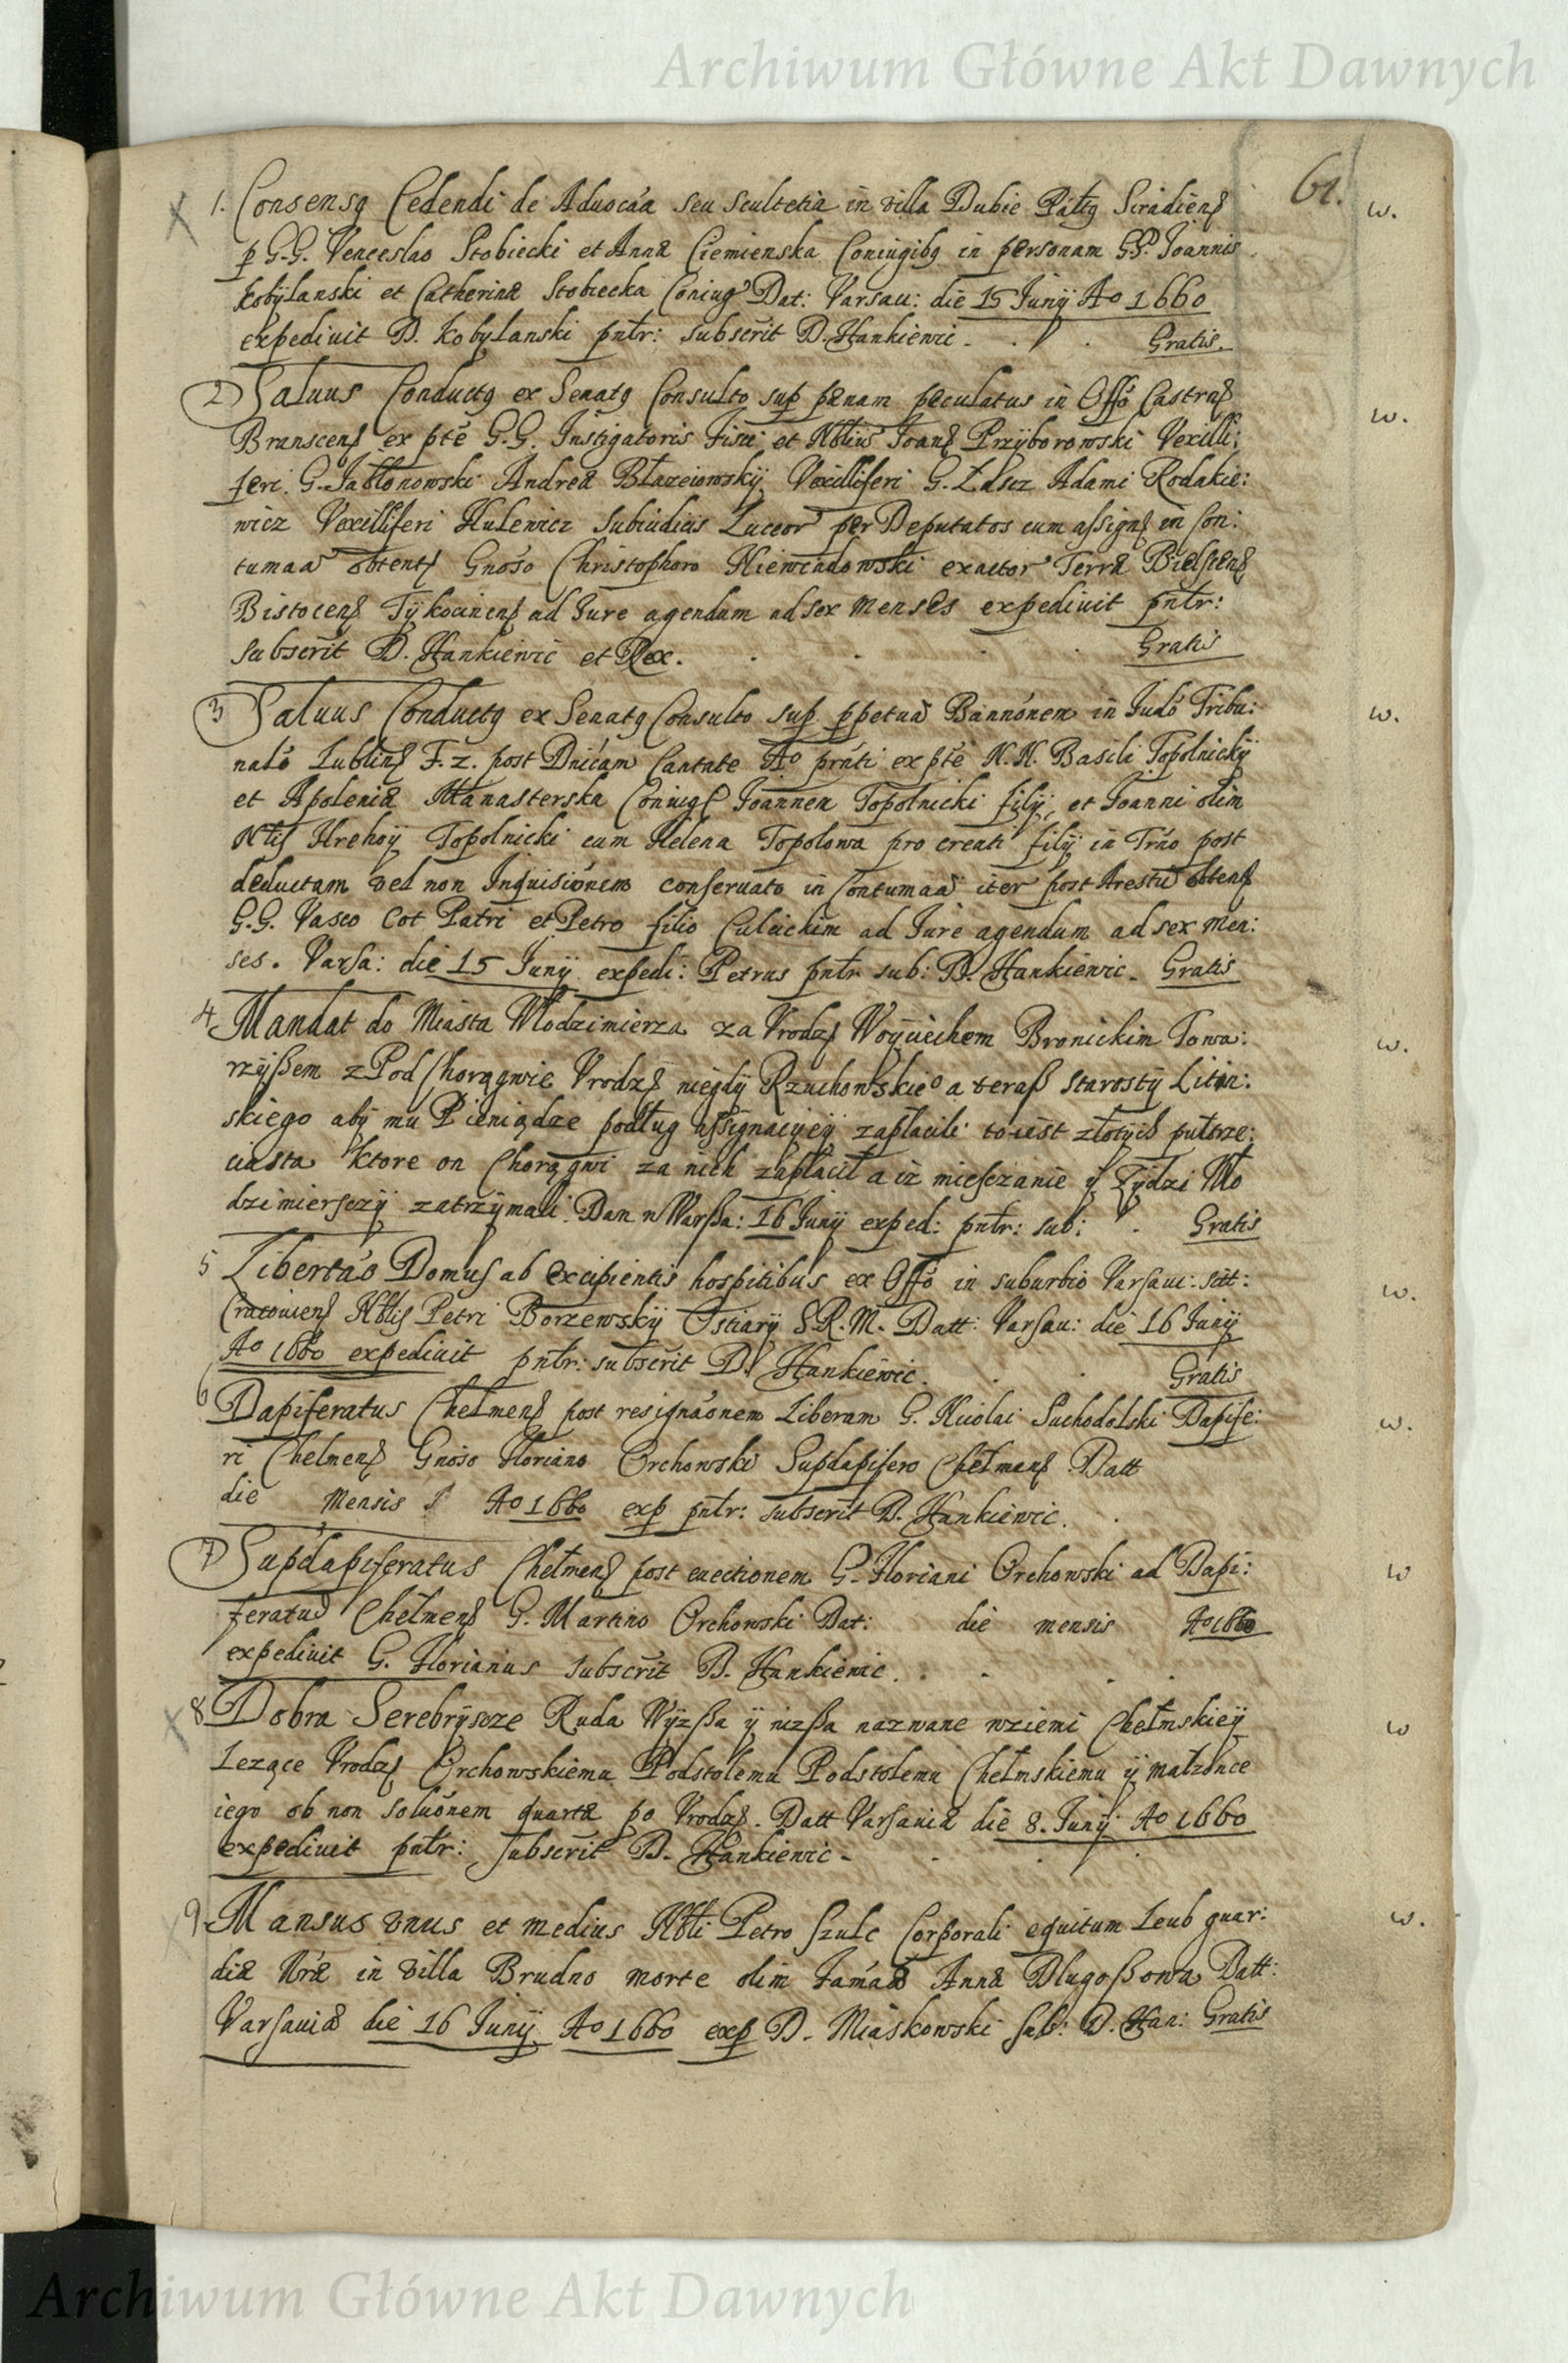 Archiwum Główne Akt Dawnych
61.
1. Consensq Cedendi de Aduocáa seu scultetia in villa Dubie Pałtg Siradiens w.
p G.G. Venceslao Stobiecki et Anna Ciemienska Coniugibq in personam GG. Joannis
Kobylanski et Catherina Stobiecka Coniug Dat: Varsau: die 15 Junij Ao 1660
expediuit D. Kobylanski pntr: subscrit D. Hankiewic. Gratis.
2 Saluus Conductq ex Senatq Consulto sup pænam peculatus in Offo Castrens w.
Branscens ex pte G.G. Instigatoris Fisci et Nbliu Joans Przyborowski Vexilli:
feri. G. Jabłonowski Andrea Błazeiowskij Vexilliferi G. Łascz Adami Rodakie:
wicz Vexilliferi Hulewicz Subiudicis Luceor per Deputatos cum assigns in Con:
tumaa obtents Gnoso Christophoro Niewiadowski exactor Terra Bielscens
Bistocens Tykocinens ad Jure agendum ad sex menses expediuit pntr:
subscrit D. Hankiewic et Rex. Gratis
3 Saluus Conductq ex Senatq Consulto sup. ppetua Bannónem in Judo Tribu: w.
nalo Lublins F. 2. post Dnicam Cantate Ao prnti ex pte N.N. Basili Topolnickij
et Apolenia Manasterska Coniugs Joannem Topolnicki filij, et Joanni olim
Nbls Hrehoij Topolnicki cum Helena Topolowa pro creati filij in Trno post
deductam vel non Inquisiónem conseruato in Contumaa iter post Arestu obtens
G.G. Vasco Cot Patri et Petro filio Culcickim ad Jure agendum ad sex Men:
ses. Varsa: die 15 Junij expedi: Petrus pntr sub: D. Hankiewic. Gratis
4 Mandat do Miasta Włodzimierza za Vrodzs Woyciechem Bronickim Towa: w.
rzyßem z Pod Chorągwie Vrodzs niegdy Rzuchowskieo a teraß Starosty Litin:
skiego aby mu Pieniądze podług assignacyey zapłacili to iest złotych pułtrze:
ciasta ktore on Chorągwi za nich zapłacił a iz miesczanie y Zydzi Wło
dzimiersczy zatrzymali. Dan w Warßa: 16 Junij exped: pntr: sub: Gratis
5 Libertáo Domus ab excipientis hospitibus ex Offo in suburbio Varsaui: sit: w.
Cracouiens Nblis Petri Borzewskij Ostiarij S.R.M. Datt: Varsau: die 16 Junij
Ao 1660 expediuit pntr: subscrit D. Hankiewic. Gratis
6 Dapiferatus Chelmens post resignáonem Liberam G. Nicolai Suchodolski Dapife: w.
ri Chelmens Gnoso Floriano Orchowski Supdapifero Chelmens Datt
die mensis Ao 1660 exp pntr: subscrit D. Hankiewic.
7 Supdapiferatus Chełmens post euectionem G. Floriani Orchowski ad Dapi: w
feratu Chełmens G. Martino Orchowski Dat: die mensis Ao 1660
expediuit G. Florianus subscrit D. Hankiewic.
8 Dobra Serebryscze Ruda Wyzßa y nizßa nazwane w ziemi Chełmskiey w
Lezące Vrodzs Orchowskiemu Podstolemu Podstolemu Chełmskiemu y małzonce
iego ob non soluónem quarta po Vrodzs. Datt Varsauia die 8. Junij Ao 1660
expediuit pntr: subscrit D. Hankiewic.
9 Mansus vnus et medius Nbli Petro Szulc Corporali equitum Leub guar: w.
dia Nra in villa Brudno morte olim Fámaa Anna Dlugoßowa Datt:
Varsauia die 16 Junij Ao 1660 exp D. Miaskowski sub: D. Han: Gratis
Archiwum Główne Akt Dawnych